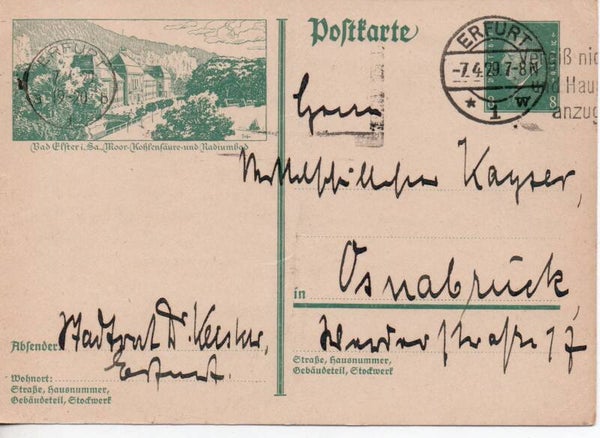 Postkarte
ERFURT
-7.4.29.7-8N
* 1 w
Vergiß nic
und Hau
anzug
ERFURT
Bad Elster i. Sa., Moor-Kohlensäure-und Radiumbad
Herrn
Mittelschullehrer Kayser,
in Osnabrück,
Werderstraße 17
Straße, Hausnummer,
Gebäudeteil, Stockwerk
Absender: Stadtrat Dr.
Erfurt.
Wohnort:
Straße, Hausnummer,
Gebäudeteil, Stockwerk
8